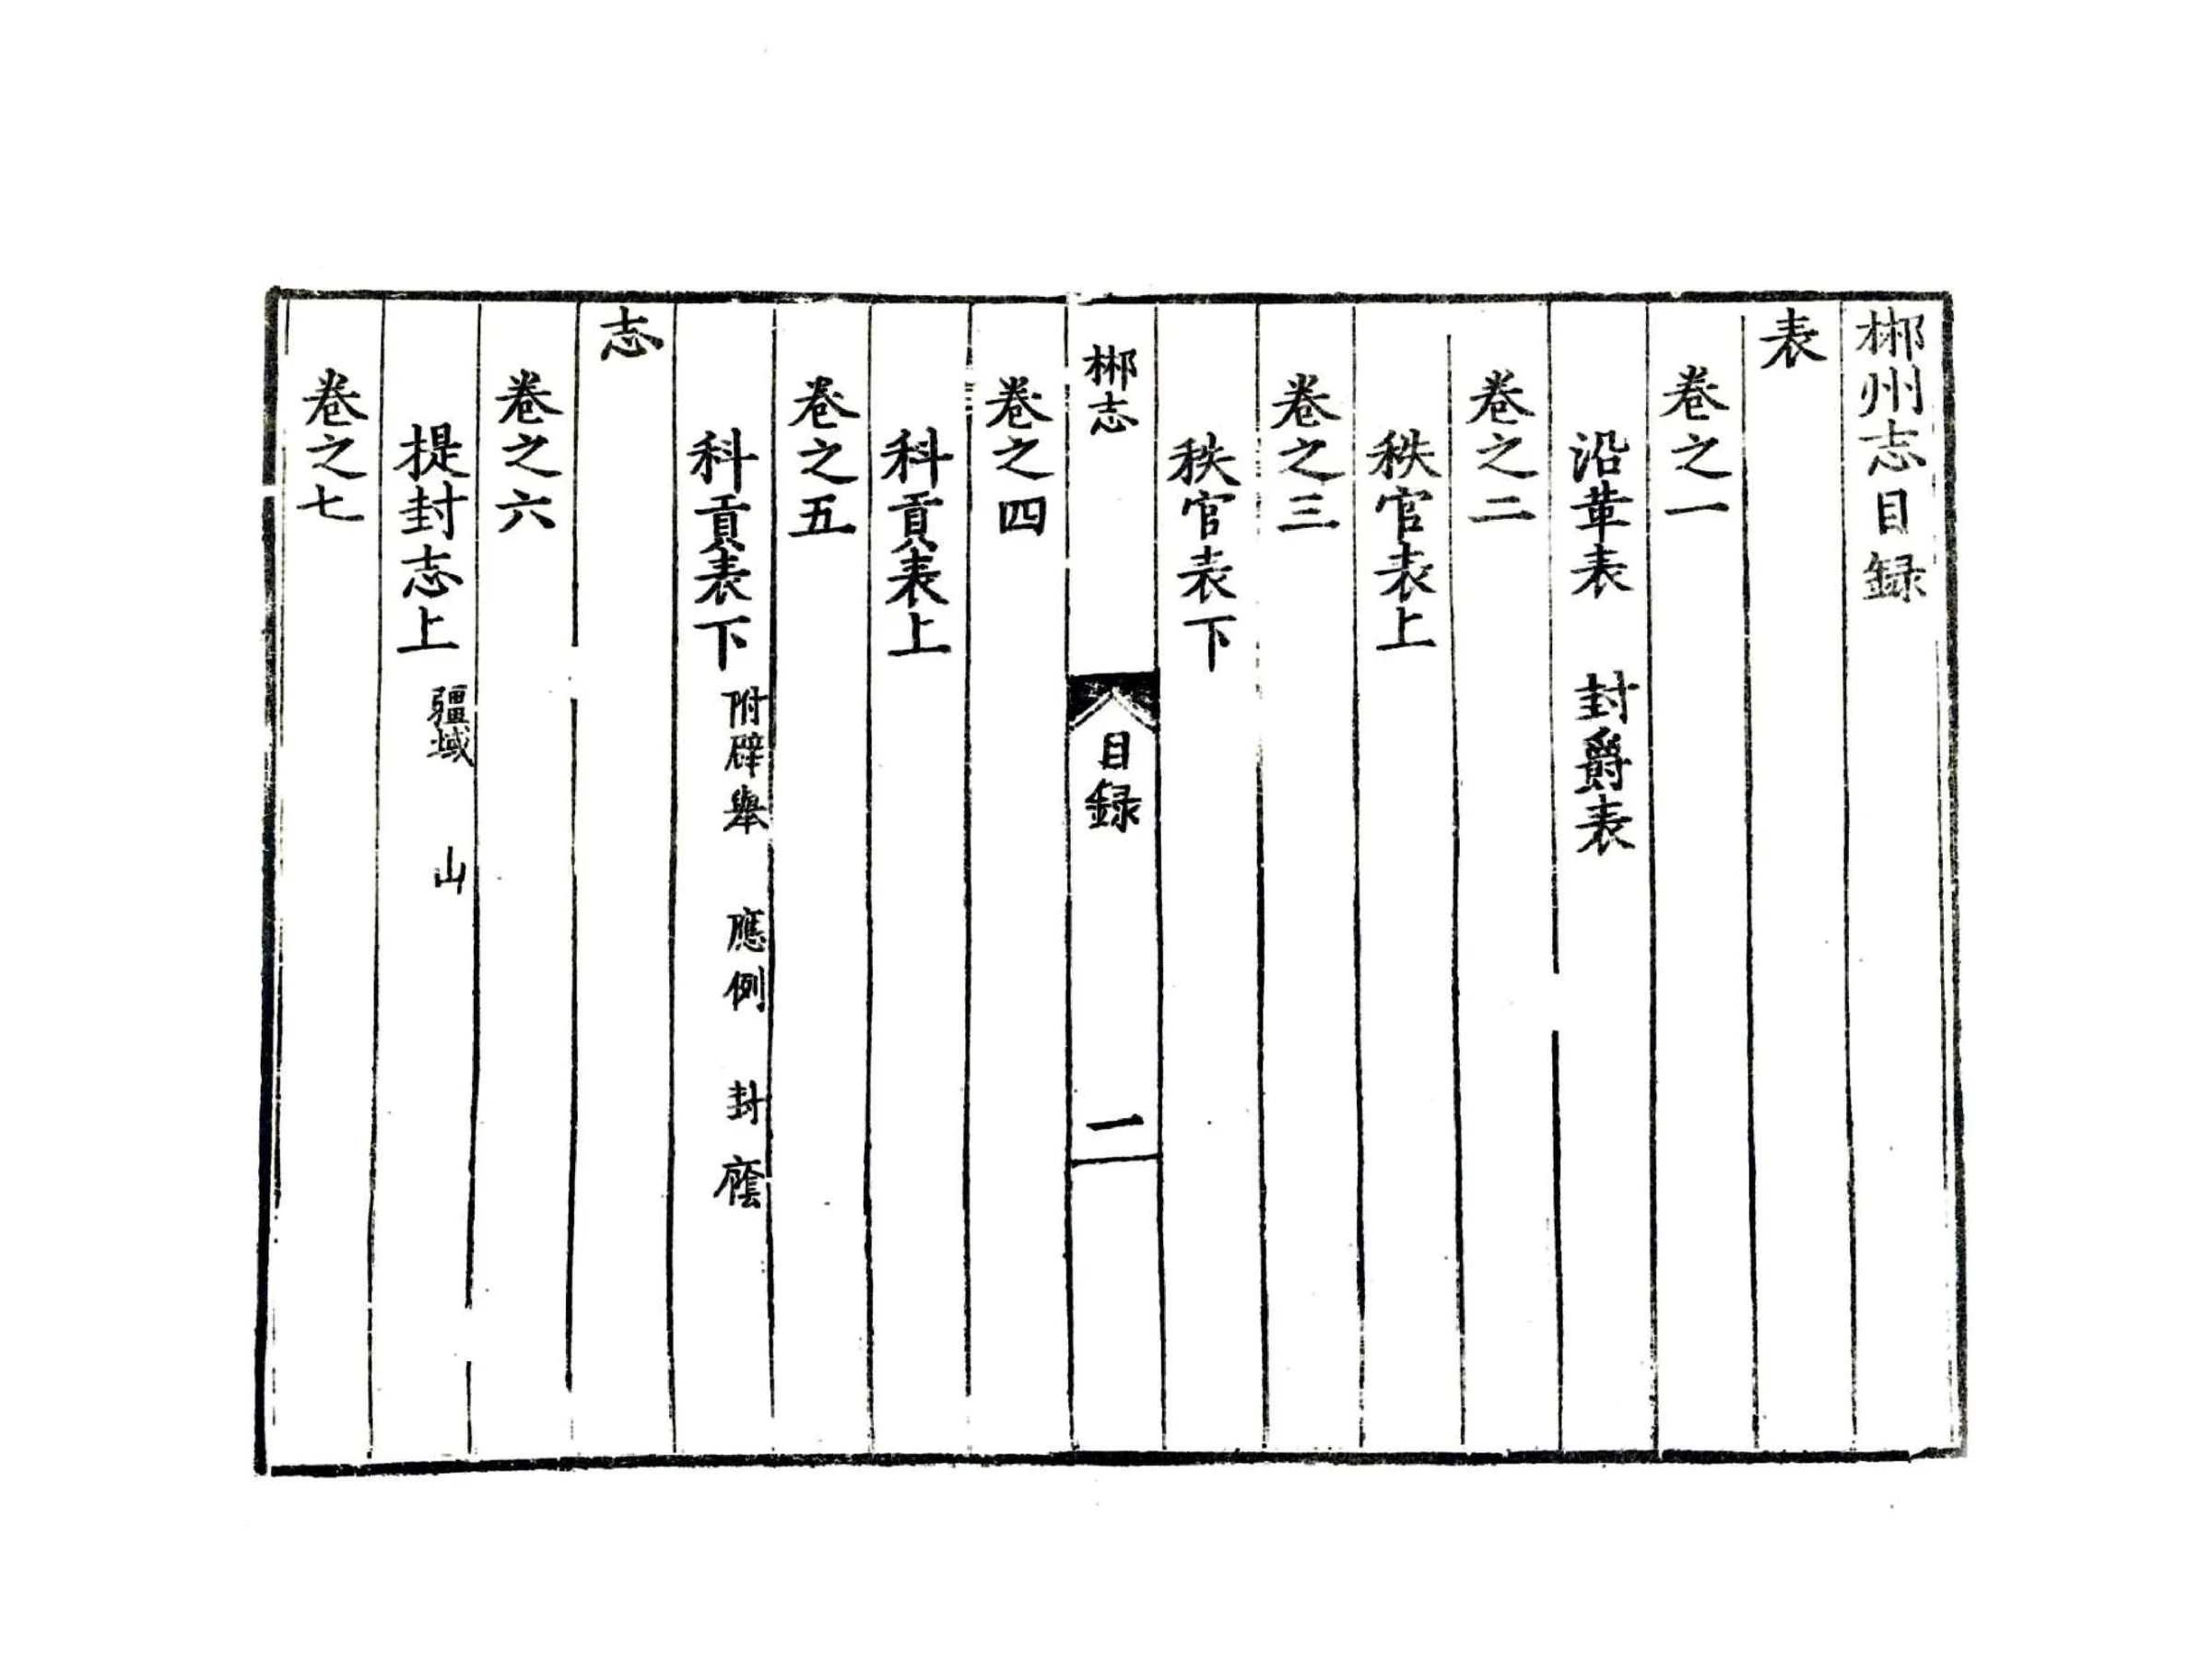 郴州志目録
表
卷之一
沿革表 封爵表
卷之二
秩官表上
卷之三
秩官表下
郴志 目録 一
卷之四
科貢表上
卷之五
科貢表下 附辟舉 應例 封廕
志
卷之六
提封志上 疆域 山
卷之七